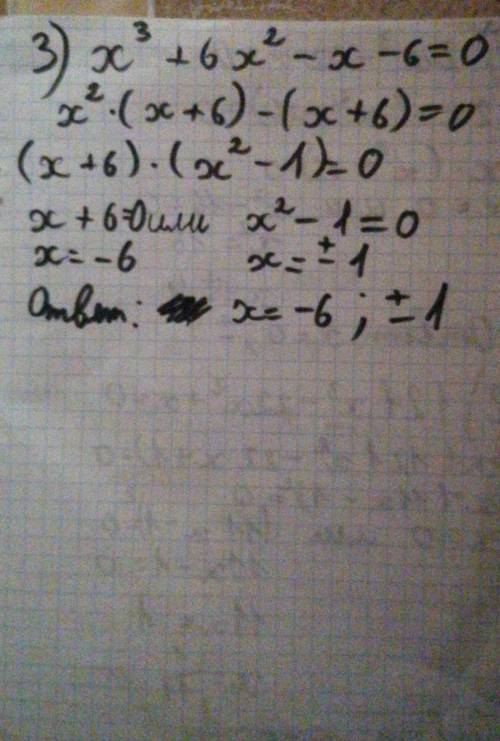 3) x³ + 6x² - x - 6 = 0
x²·(x+6) - (x+6) = 0
(x+6)·(x²-1) = 0
x + 6 = 0 или x² - 1 = 0
x = -6 x = ±1
Ответ: x = -6 ; ±1